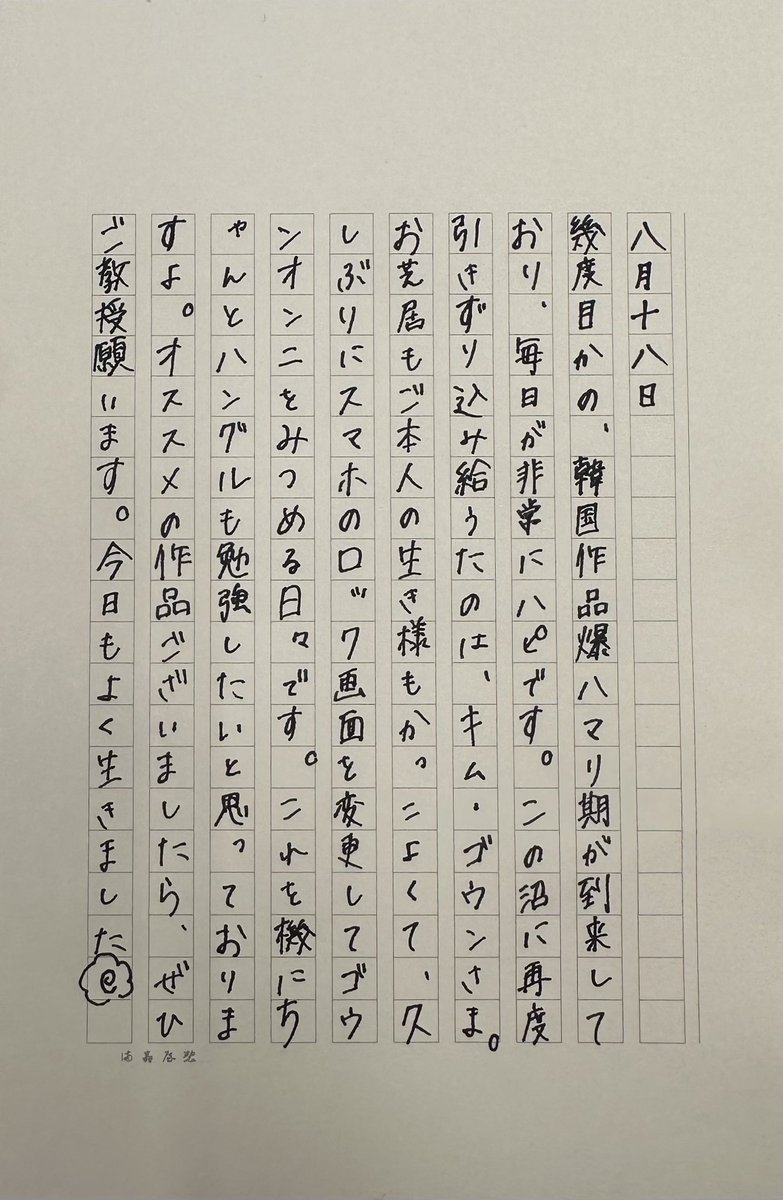 八月十八日
幾度目かの、韓国作品爆ハマリ期が到来して
おり、毎日が非常にハピです。この沼に再度
引きずり込み給うたのは、キム・ゴウンさま。
お芝居もご本人の生き様もかっこよくて、久
しぶりにスマホのロック画面を変更してゴウ
ンオンニをみつめる日々です。これを機にち
ゃんとハングルも勉強したいと思っておりま
すよ。オススメの作品ございましたら、ぜひ
ご教授願います。今日もよく生きました